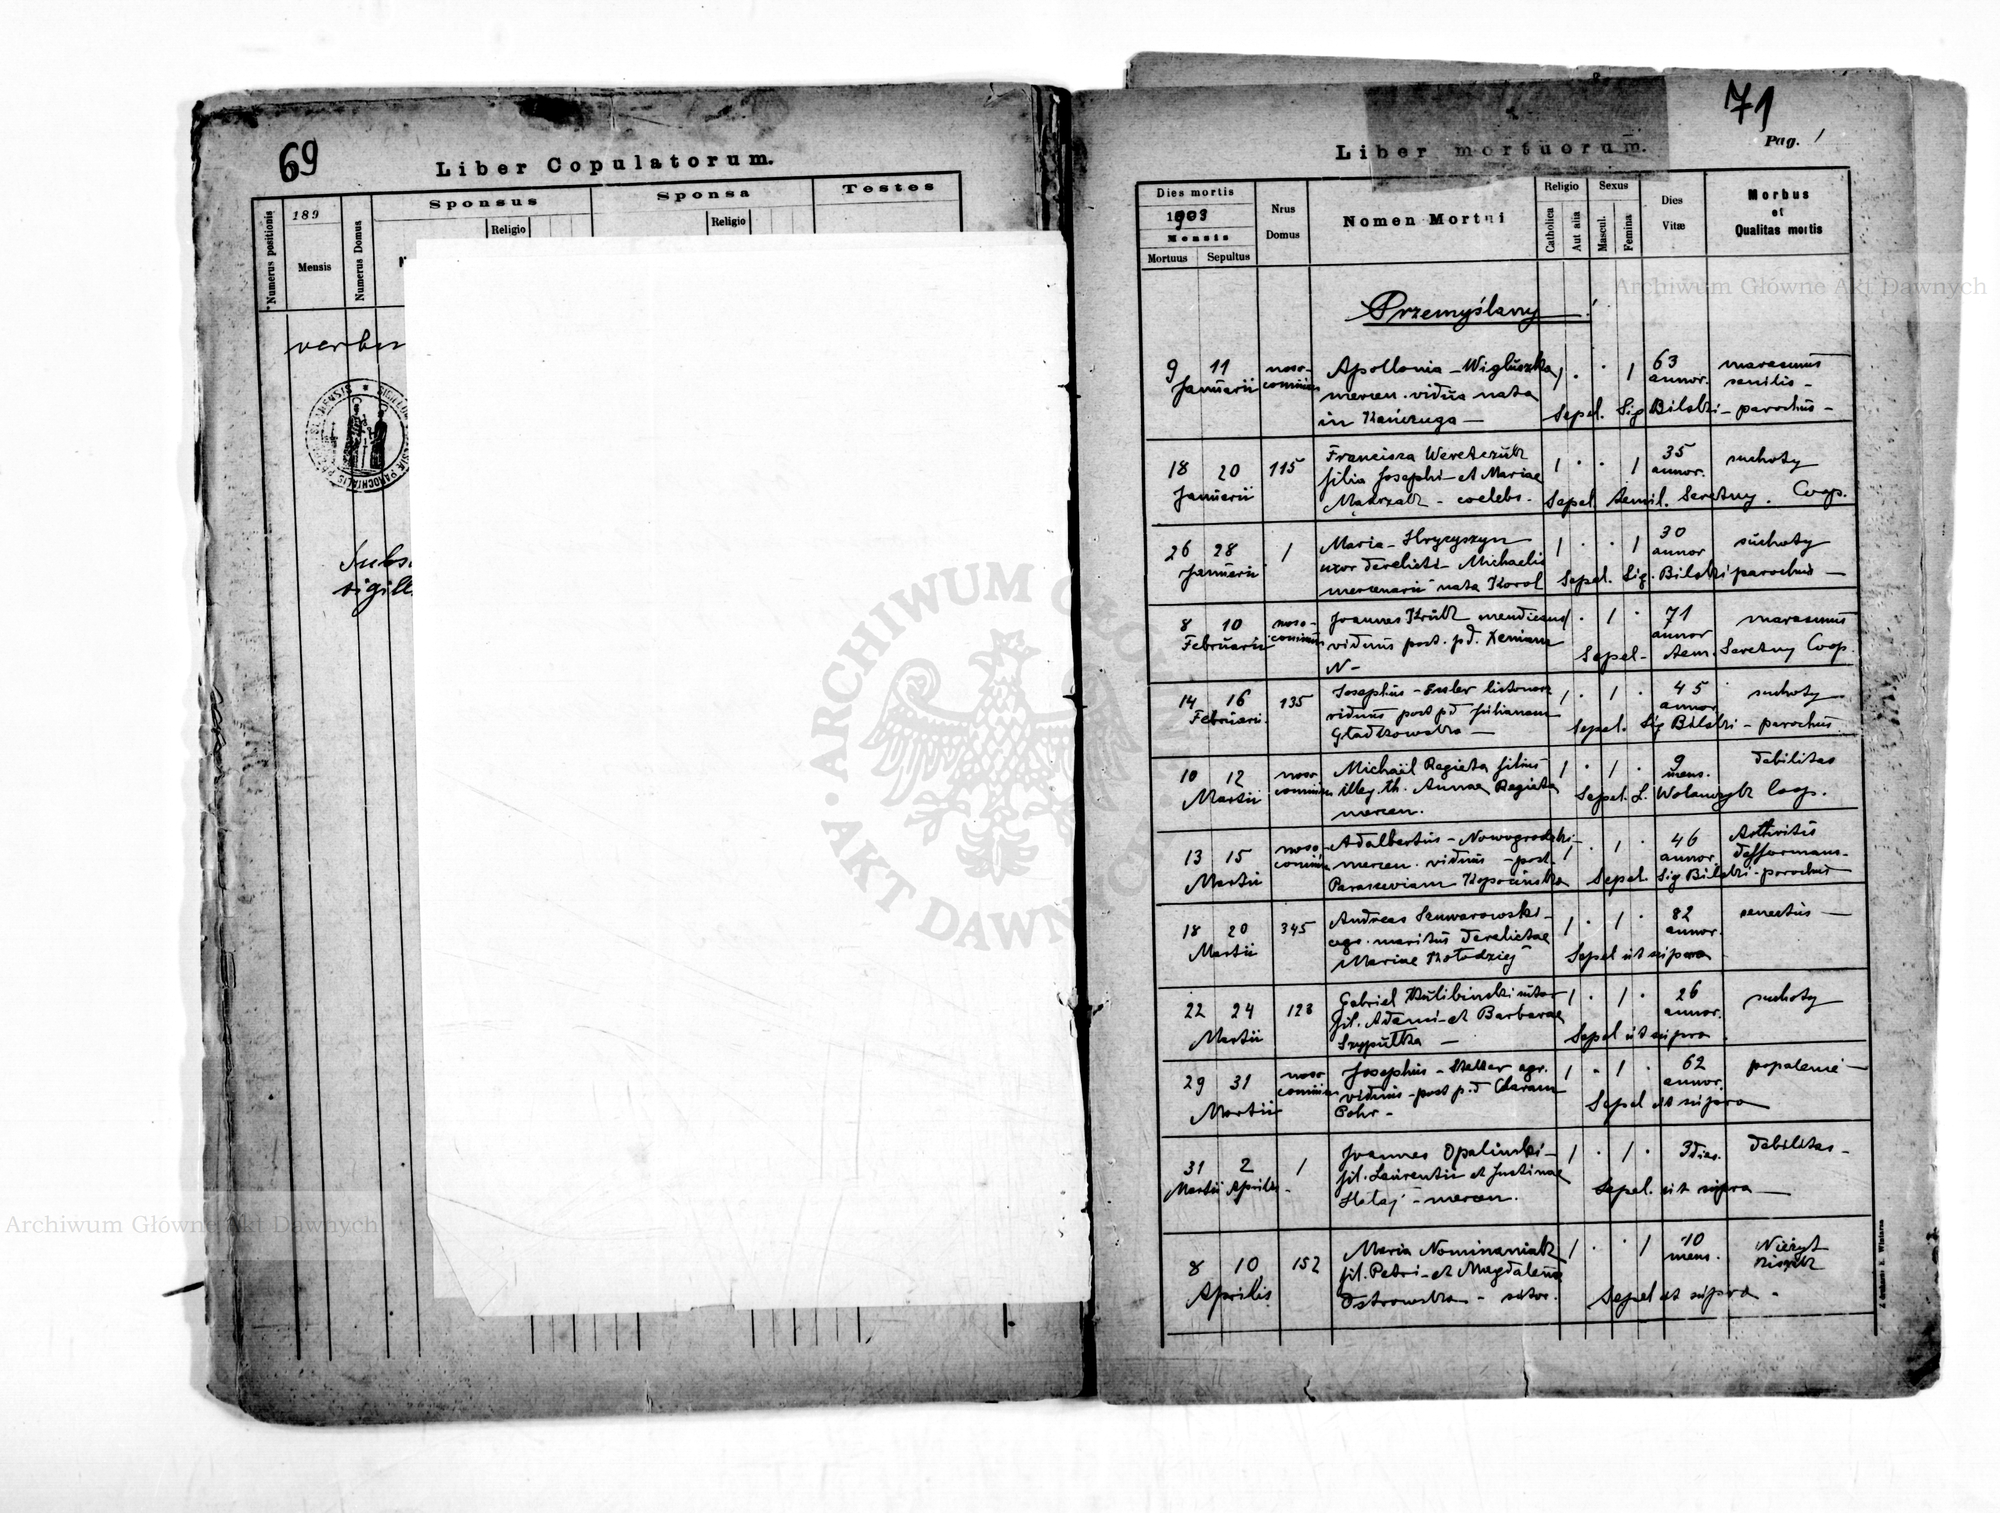 69
Liber Copulatorum.
Numerus positionis
189
Mensis
Numerus Domus
Sponsus
Religio
Sponsa
Religio
Testes
sigill
71
Pag. 1
Liber mortuorum.
Dies mortis
1903
Mensis
Mortuus Sepultus
Nrus
Domus
Nomen Mortui
Religio
Catholica
Aut alia
Sexus
Mascul.
Femina
Dies
Vitæ
Morbus
et
Qualitas mortis
Przemyślany
9 11 noso- Apollonia - 1 · · 1 63 marasmus
Januarii comium mercen. vidua nata annor. senilis -
in Kańczuga - Sepel. Sig Bilski - parochus -
18 20 115 Francisca Weretczuk 1 · · 1 35 suchoty
Januarii filia Josephi et Mariae annor.
coelebs. Sepel. Aemil. Seretny. Coop.
26 28 1 Maria - Hrycyszyn 1 · · 1 30 suchoty
Januarii uxor derelicti Michaelis annor
mercenarii nata Korol Sepel. Sig. Bilski parochus -
8 10 noso- Joannes Kruk mendicus 1 · 1 · 71 marasmus
Februarii comium viduus post. pd. Xeniam annor
N - Sepel - Aem. Seretny Coop.
14 16 135 Josephus - listonosz 1 · 1 · 45 suchoty
Februarii. viduus post pd Julianam annor
Sepel. Sig Bilski - parochus
10 12 noso Michaël Regieta filius 1 · 1 · 9 debilitas
Martii comium illeg. th. Annae Regieta mens.
mercen. Sepel. Coop.
13 15 noso- Adalbertus - Nowogrodzki - 1 · 1 · 46 Arthritis
Martii comium mercen. viduus - post. annor deformans -
Paraseviam Kopocińska Sepel. Sig Bilski - parochus
18 20 345 Andreas 1 · 1 · 82 senectus -
Martii agr. maritus derelictae annor.
Mariae Kołodziej Sepel ut supra
22 24 128 Gabriel Kulibinski sutor 1 · 1 · 26 suchoty
Martii fil. Adami et Barbarae annor.
Szypułka - Sepel ut supra.
29 31 noso Josephus - agr. 1 · 1 · 62 popalenie -
Martii comium viduus - post p.d Claram annor.
Sepel ut supra
31 2 1 Joannes Opalinski - 1 · 1 · 3 dies. debilitas -
Martii Aprilis - fil. Laurentii et Justinae
mercen. Sepel. ut supra -
8 10 152 Maria Nominaniak 1 · · 1 10 Nieżyt
Aprilis fil. Petri - et Magdalena mens. kiszek
Ostrowska - sutor. Sepel ut supra -
Archiwum Główne Akt Dawnych
Archiwum Główne Akt Dawnych
ARCHIWUM GŁÓWNE AKT DAWNYCH